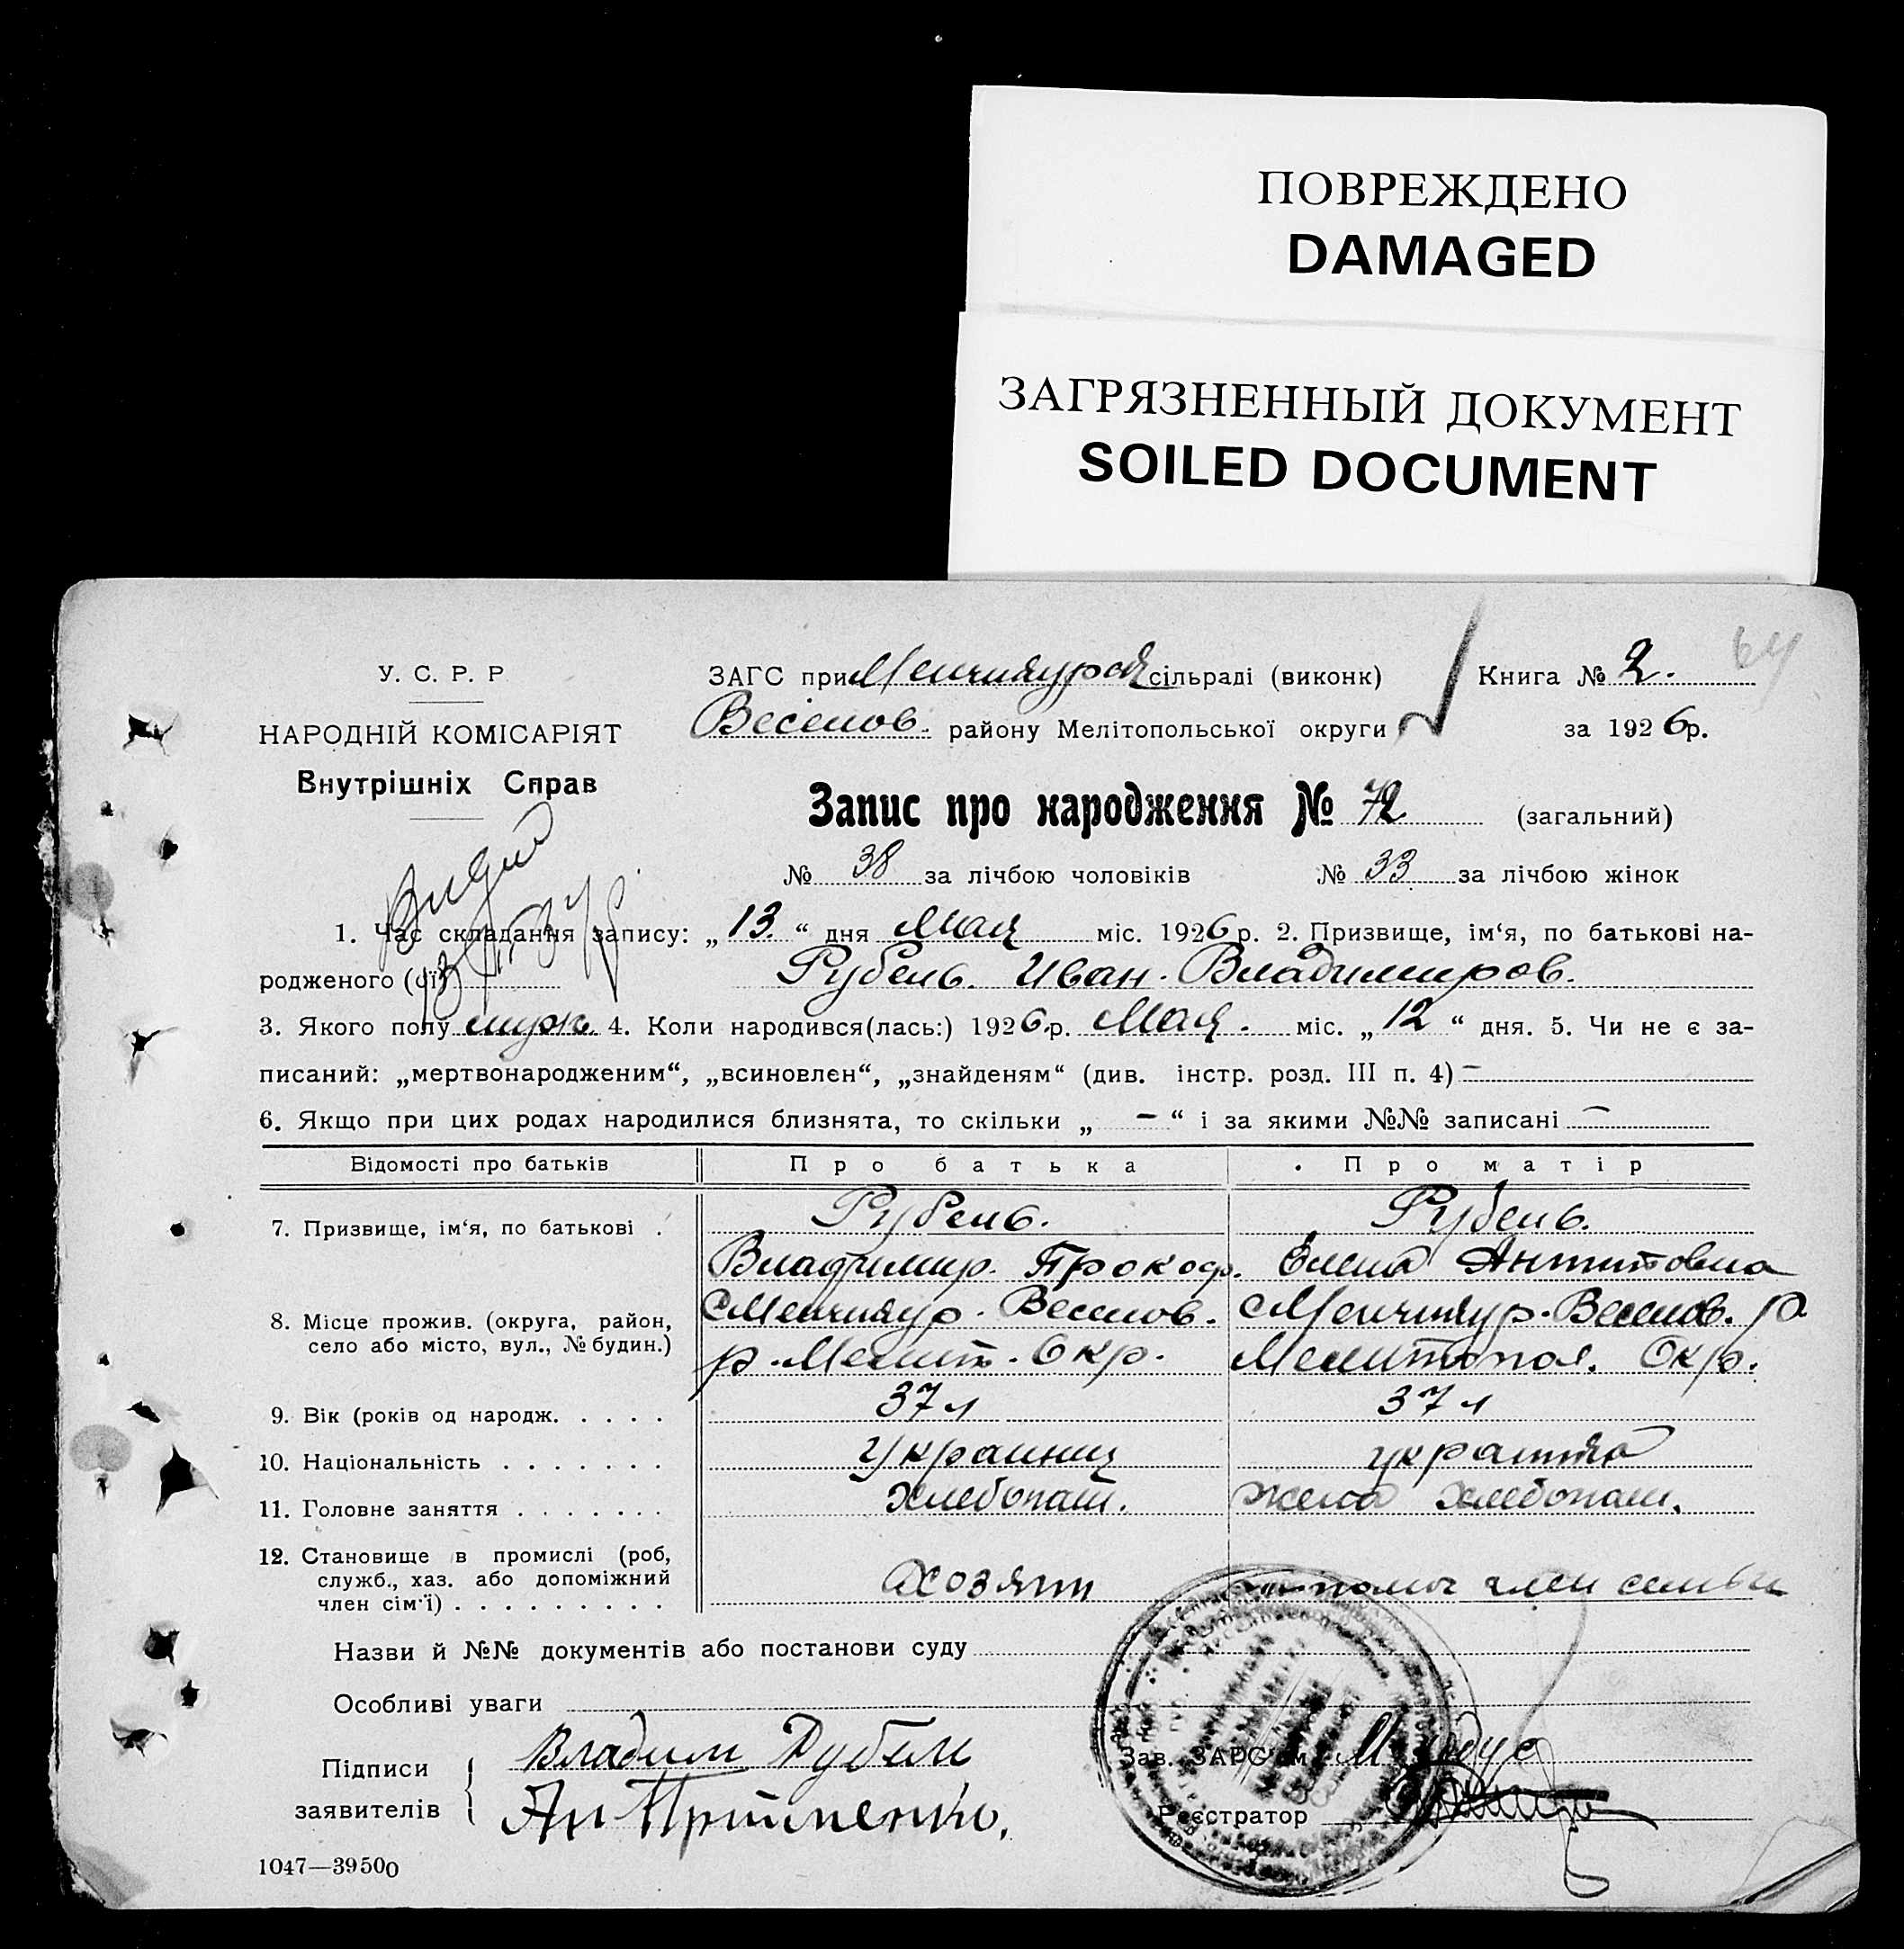 ПОВРЕЖДЕНО
DAMAGED
ЗАГРЯЗНЕННЫЙ ДОКУМЕНТ
SOILED DOCUMENT
64
У. С. Р. Р
НАРОДНІЙ КОМІСАРІЯТ
Внутрішніх Справ
ЗАГС при Менчикурск сільраді (виконк)
Веселов. району Мелітопольської округи
Книга № 2.
за 1926р.
Запис про народження № 72 (загальний)
№ 38 за лічбою чоловіків № 33 за лічбою жінок
1. Час складання запису: „13.“ дня Мая міс. 1926 р. 2. Призвище, ім‘я, по батькові на-
родженого (ої) Рубель. Иван. Владимиров.
3. Якого полу муж. 4. Коли народився(лась:) 1926.р. Мая. міс. „12“ дня. 5. Чи не є за-
писаний: „мертвонародженим“, „всиновлен“, „знайденям“ (див. інстр. розд. III п. 4) –
6. Якщо при цих родах народилися близнята, то скільки „ – “ і за якими №№ записані –
Відомості про батьків Про батька Про матір
7. Призвище, ім‘я, по батькові . Рубель. Рубель.
Владимир. Прокоф. Елена Антитовна
8. Місце прожив. (округа, район, Менчикур. Веселов. Менчикур. Веселов. р.
село або місто, вул., № будин.) р. Мелит. Окр. Мелитопол. Окр.
9. Вік (років од народж. . . . . 37 л 37 л
10. Національність . . . . . . . Украинц украинка
11. Головне заняття . . . . . . . Хлебопаш. жена хлебопаш.
12. Становище в промислі (роб,
служб., хаз. або допоміжний
член сім‘ї) . . . . . . . . . хозяин помоч член семьи
Назви й №№ документів або постанови суду
Особливі уваги
Підписи
заявителів
Владим Рубель
Ан Прийменко.
Зав. ЗАГС‘ом
Реєстратор
1047—39500